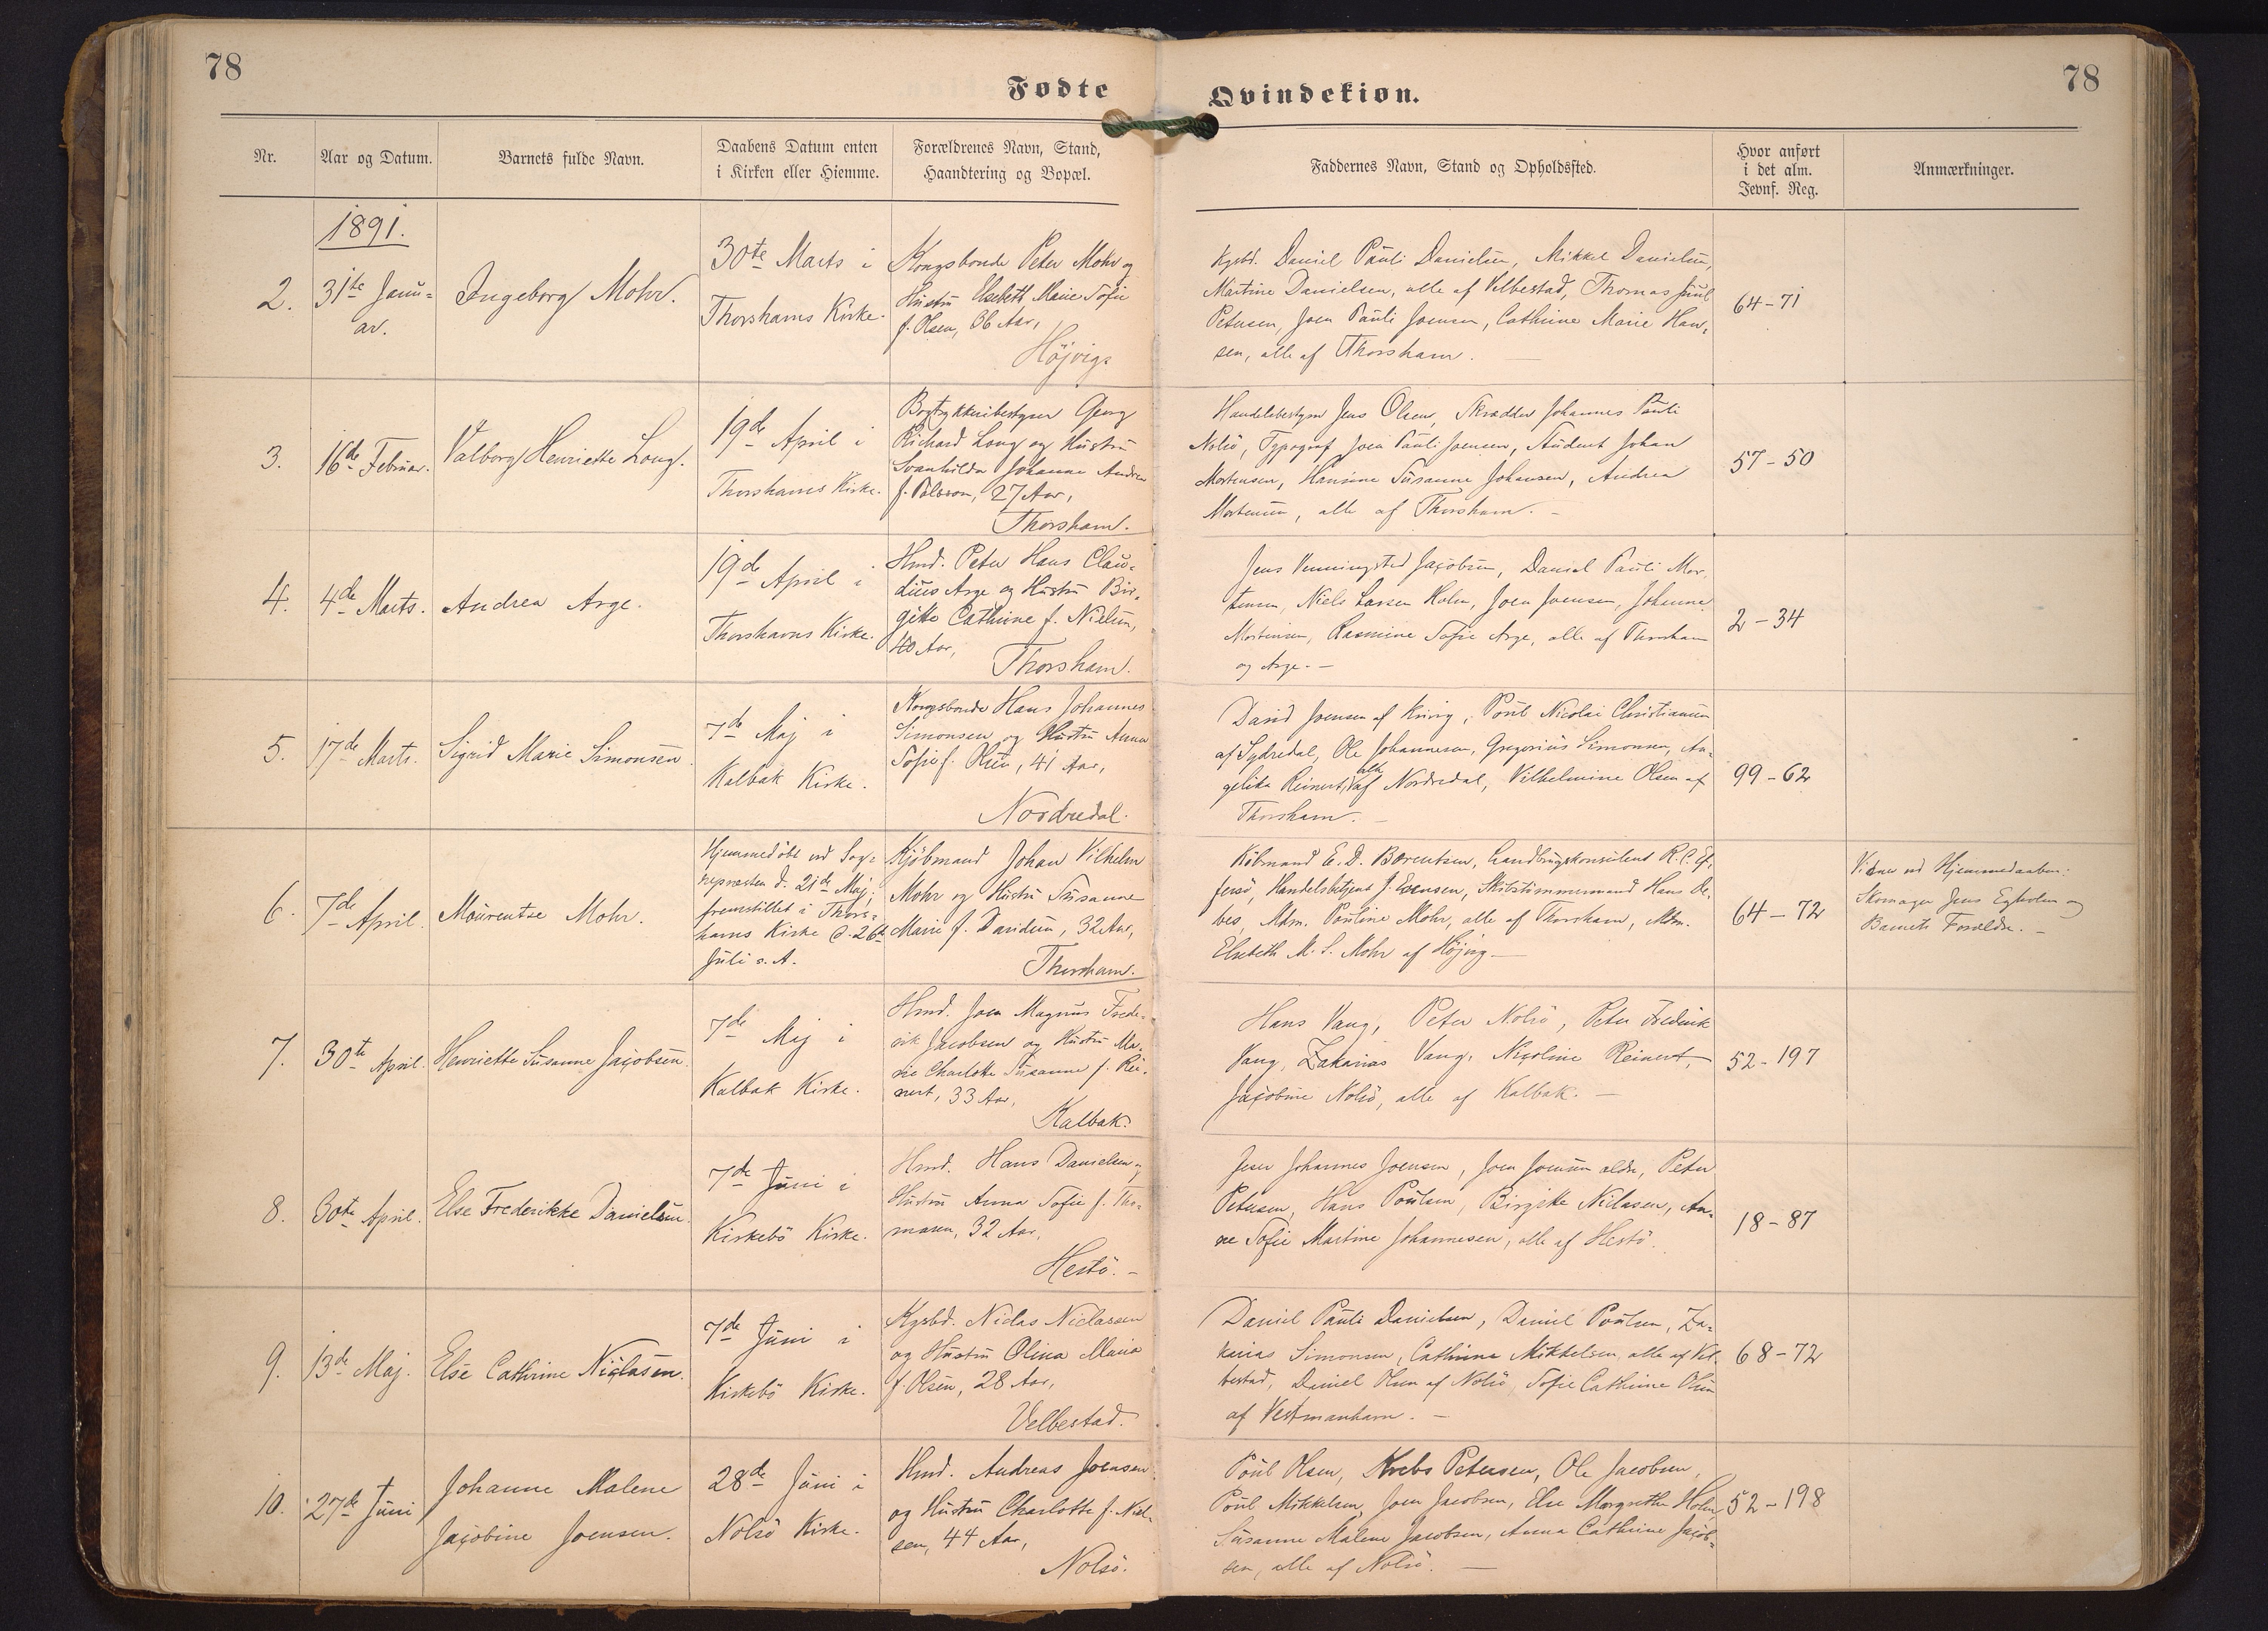 78
Fødte
Qvindekiøn.
78
Nr.
Aar og Datum.
Barnets fulde Navn.
Daabens Datum enten
i Kirken eller Hiemme.
Forældrenes Navn, Stand,
Haandtering og Bopæl.
Faddernes Navn, Stand og Opholdssted.
Hvor anført
i det alm.
Jevnf. Reg.
Anmærkninger.
1891.
2.
31te Janu-
ar.
Ingeborg Mohr.
30te Marts i
Thorshavns Kirke.
Kongsbonde Peter Mohr og
Hustru Elsebeth Marie Sofie
f. Olsen, 36 Aar,
Højvig
Kgsbd. Daniel Pauli Danielsen, Mikkel Danielsen,
Martine Danielsen, alle af Velbestad, Thomas Juul
Petersen, Joen Pauli Joensen, Cathrine Marie Han-
sen, alle af Thorshavn.
64-71
3.
16de Februar.
Valborg Henriette Long.
19de April i
Thorshavns Kirke.
Bogtrykkeribestyrer Georg
Richard Long og Hustru
Svanhilda Johanne Andrea
f. 27 Aar,
Thorshavn.
Handelsbestyrer Jens Olsen, Skrædder Johannes Pauli
Nolsö, Typograf Joen Pauli Joensen, Student Johan
Mortensen, Hansine Susanne Johansen, Andrea
Mortensen, alle af Thorshavn. -
57-50
4.
4de Marts.
Andrea Arge.
19de April i
Thorshavns Kirke.
Hmd. Peter Hans Clau-
dius Arge og Hustru Bir-
gitte Cathrine f. Nielsen,
40 Aar,
Thorshavn.
Jens Venningsted Jacobsen, Daniel Pauli Mor-
tensen, Niels Larsen Holm, Joen Joensen, Johanne
Mortensen, Rasmine Sofie Arge, alle af Thorshavn
og Arge. -
2-34
5.
17de Marts.
Sigrid Marie Simonsen
7de Maj i
Kalbak Kirke.
Kongsbonde Hans Johannes
Simonsen og Hustru Anna
Sofie f. Olsen, 41 Aar,
Nordredal.
David Joensen af Kvivig, Poul Nicolai Christiansen
af Sydredal, Ole Johannesen, Gregorius Simonsen, An-
gelika Reinert, alle af Nordredal, Vilhelmine Olsen af
Thorshavn. -
99-62
6.
7de April.
Maurentse Mohr.
Hjemmedöbt ved Sog-
nepræsten d. 21de Maj;
fremstillet i Thors-
havns Kirke d. 26de
Juli s. A.
Kjöbmand Johan Vilhelm
Mohr og Hustru Susanne
Marie f. Davidsen, 32 Aar,
Thorshavn.
Köbmand E. D. Bærentsen, Landbrugskonsulent R. C. Ef-
fersö, Handelsbetjent J. Evensen, Skibstömmermand Hans De-
bes, Mdm. Pouline Mohr, alle af Thorshavn, Mdm.
Elsebeth M. S. Mohr af Höjvig -
64-72
Vidner ved Hjemmedaaben:
Skomager Jens Egholm og
Barnets Forældre. -
7.
30te April.
Henriette Susanne Jacobsen.
7de Maj i
Kalbak Kirke.
Hmd. Joen Magnus Frede-
rik Jacobsen og Hustru Ma-
rie Charlotte Susanne f. Rei-
nert, 33 Aar,
Kalbak.
Hans Vang, Peter Nolsö, Peter Frederik
Vang, Zakarias Vang, Nicoline Reinert,
Jacobine Nolsö, alle af Kalbak. -
52-197
8.
30te April.
Else Frederikke Danielsen.
7de Juni i
Kirkebö Kirke.
Hmd. Hans Danielsen og
Hustru Anna Sofie f. Tho-
masen, 32 Aar,
Hestö. -
Jens Johannes Joensen, Joen Joensen ældre, Peter
Petersen, Hans Poulsen, Birgitte Niclasen, An-
ne Sofie Martine Johannesen, alle af Hestö.
18-87
9.
13de Maj.
Else Cathrine Niclasen.
7de Juni i
Kirkebö Kirke.
Kgsbd. Niclas Niclassen
og Hustru Olina Maria
f. Olsen, 28 Aar,
Velbestad.
Daniel Pauli Danielsen, Daniel Poulsen, Za-
karias Simonsen, Cathrine Mikkelsen, alle af Vel-
bestad, Daniel Olsen af Nolsö, Sofie Cathrine Olsen
af Vestmanhavn. -
68-72
10.
27de Juni
Johanne Malene
Jacobine Joensen.
28de Juni i
Nolsö Kirke.
Hmd. Andreas Joensen
og Hustru Charlotte f. Niel-
sen, 44 Aar,
Nolsö.
Poul Olsen, Krebs Petersen, Ole Jacobsen,
Poul Mikkelsen, Joen Jacobsen, Else Margrethe Holm,
Susanne Malene Jacobsen, Anna Cathrine Jacob-
sen, alle af Nolsö. -
52-198